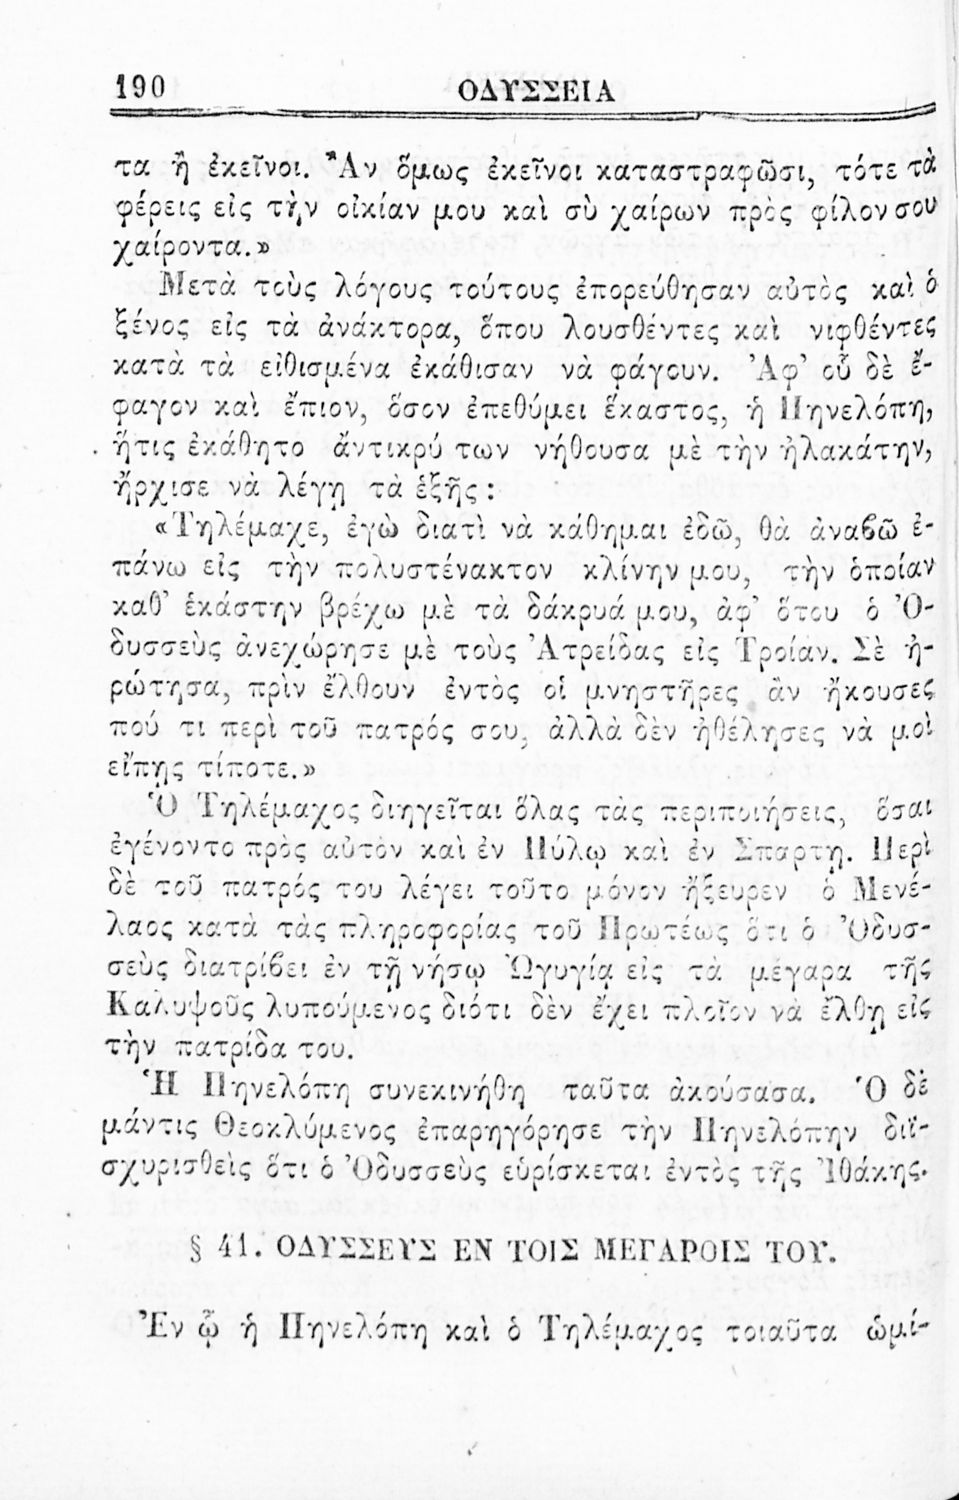 190 ΟΔΥΣΣΕΙΑ
τα ἢ ἐκεῖνοι. Ἂν ὅμως ἐκεῖνοι καταστραφῶσι, τότε τὰ
φέρεις εἰς τὴν οἰκίαν μου καὶ σὺ χαίρων πρὸς φίλον σου
χαίροντα.»
Μετὰ τοὺς λόγους τούτους ἐπορεύθησαν αὐτὸς καὶ ὁ
ξένος εἰς τὰ ἀνάκτορα, ὅπου λουσθέντες καὶ νιφθέντες
κατὰ τὰ εἰθισμένα ἐκάθισαν νὰ φάγουν. Ἀφ’ οὗ δὲ ἔ-
φαγον καὶ ἔπιον, ὅσον ἐπεθύμει ἕκαστος, ἡ Πηνελόπη,
ἥτις ἐκάθητο ἄντικρύ των νήθουσα μὲ τὴν ἠλακάτην,
ἤρχισε νὰ λέγῃ τὰ ἑξῆς:
«Τηλέμαχε, ἐγὼ διατὶ νὰ κάθημαι ἐδῶ, θὰ ἀναϐῶ ἐ-
πάνω εἰς τὴν πολυστένακτον κλίνην μου, τὴν ὁποίαν
καθ’ ἑκάστην βρέχω μὲ τὰ δάκρυά μου, ἀφ’ ὅτου ὁ Ὀ-
δυσσεὺς ἀνεχώρησε μὲ τοὺς Ἀτρείδας εἰς Τροίαν. Σὲ ἠ-
ρώτησα, πρὶν ἔλθουν ἐντὸς οἱ μνηστῆρες ἂν ἤκουσες
πού τι περὶ τοῦ πατρός σου, ἀλλὰ δὲν ἠθέλησες νὰ μοὶ
εἴπῃς τίποτε.»
Ὁ Τηλέμαχος διηγεῖται ὅλας τὰς περιποιήσεις, ὅσαι
ἐγένοντο πρὸς αὐτὸν καὶ ἐν Πύλῳ καὶ ἐν Σπαρτῃ. Περὶ
δὲ τοῦ πατρός του λέγει τοῦτο μόνον ἤξευρεν ὁ Μενέ-
λαος κατὰ τὰς πληροφορίας τοῦ Πρωτέως ὅτι ὁ Ὀδυσ-
σεὺς διατρίϐει ἐν τῇ νήσῳ Ὠγυγίᾳ εἰς τὰ μέγαρα τῆς
Καλυψοῦς λυπούμενος διότι δὲν ἔχει πλοῖον νὰ ἔλθῃ εἰς
τὴν πατρίδα του.
Ἡ Πηνελόπη συνεκινήθη ταῦτα ἀκούσασα. Ὁ δὲ
μάντις Θεοκλύμενος ἐπαρηγόρησε τὴν Πηνελόπην διϊ-
σχυρισθεὶς ὅτι ὁ Ὀδυσσεὺς εὑρίσκεται ἐντὸς τῆς Ἰθάκης.
§ 41. ΟΔΥΣΣΕΥΣ ΕΝ ΤΟΙΣ ΜΕΓΑΡΟΙΣ ΤΟΥ.
Ἐν ᾧ ἡ Πηνελόπη καὶ ὁ Τηλέμαχος τοιαῦτα ὡμί-